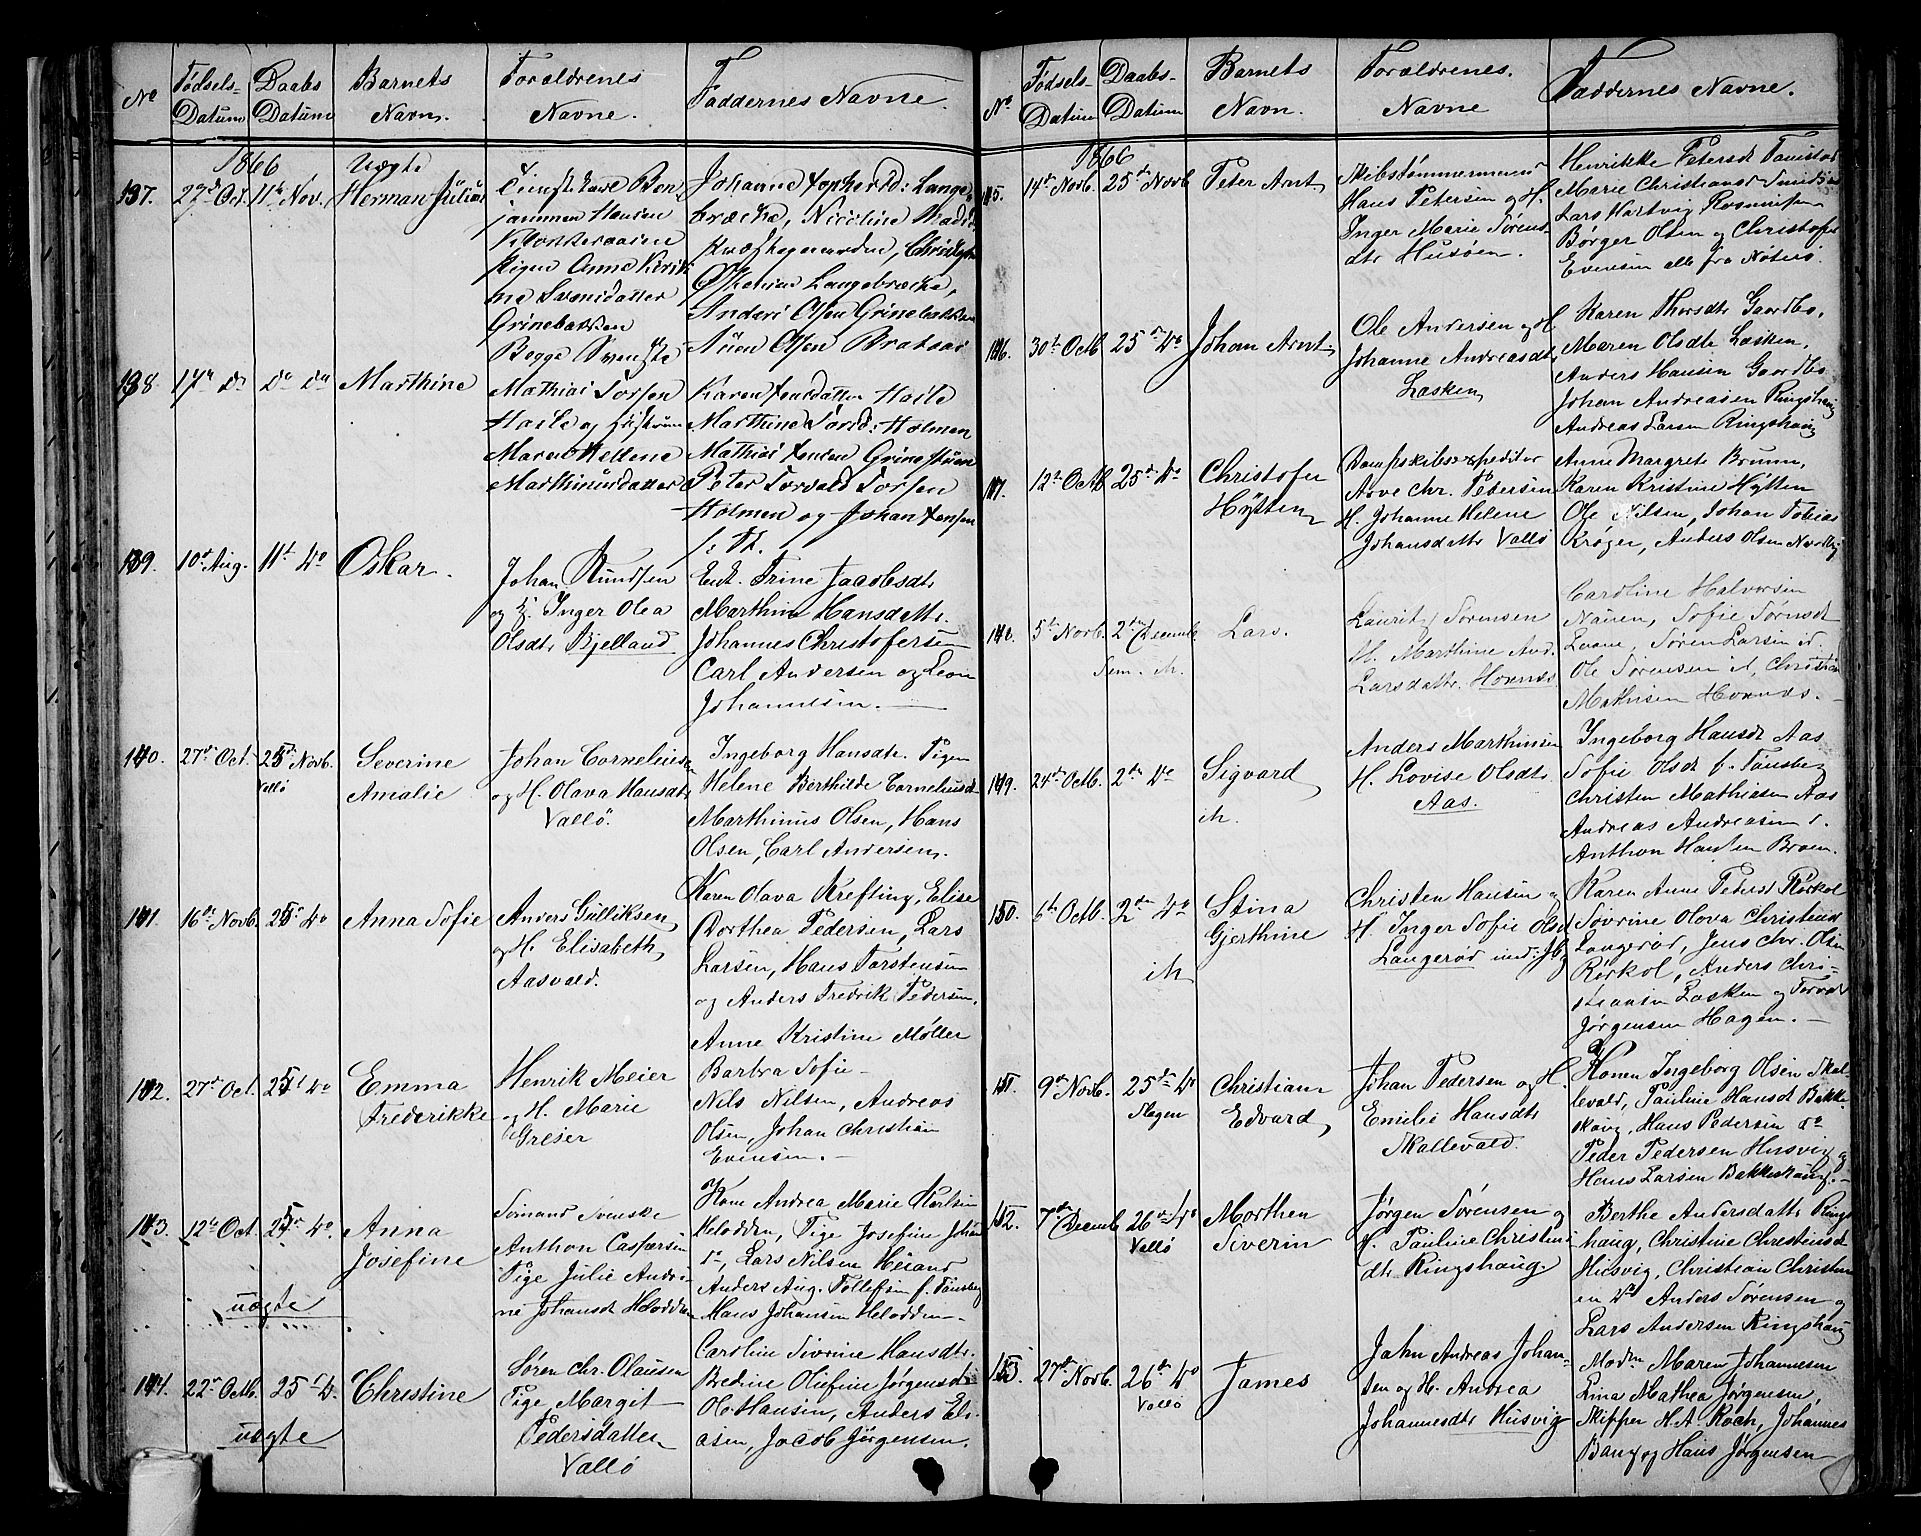 No Fødsels-Datum Daabs Datum Barnets Navn. Forældrenes Navne. Faddernes Navne.
1866
137. 27d Oct. 11te Nov. Uægte Herman Julius
Tjenestekarl Ben-
jammen Hansen
Klosteraasen
Pigen Anne Kristi-
ne Svensdatter
Grinebakken
Begge Svenske
Johanne
Langebrække, Nicoline
Christine
Langebrække,
Anders Olsen Grinebakken
Olsen
138. 17de do do do Marthine
Mathias Torsen
Hasle og Hustru
Maren Hellene
Marthinusdatter
Karen Jensdatter Hasle
Marthine Torsd: Holmen
Mathias Jensen Grinestuen
Peter Torvald Torsen
Holmen og Johan Jensen
139. 10de Aug. 11te do Oskar.
Johan Knudsen
og H. Inger Olea
Olsdtr Bjelland
Enk. Trine Jacobsdtr
Marthine Hansdattr.
Johannes Christofersen
Carl Andersen og
Johannesen.
140. 27de Oct. 25de Novb. Vallø Severine Amalie
Johan Cornelius
og H. Olava Hansdtr
Vallø.
Ingeborg Hansdtr. Pigen
Helene Berthilde Corneliusdt
Marthinus Olsen, Hans
Olsen, Carl Andersen.
141. 16de Novb. 25de do Anna Sofie
Anders Gulliksen
og H. Elisabeth
Aasvald.
Karen Olava Krefting, Elise
Dorthea Pedersen, Lars
Larsen, Hans Torstensen
og Anders Fredrik Pedersen.
142. 27de Oct. 25de do Emma Frederikke
Henrik Meier
og H. Marie
Greser
Anne Kristine Møller
Barbra Sofie
Nils Nilsen, Andreas
Olsen, Johan Christian
Evensen.
143. 12te Oct. 25de do. Anna Josefine
uægte
Sømand Svenske
Anthon Caspersen
Pige Julie Andri-
ne Johansdt Helodden
Kone Andrea Marie Karlsen
Helodden, Pige Josefine Johan
do, Lars Nilsen
Anders Aug. Tollefsen f. Tønsberg
Hans Johansen Helodden
144. 22de Octb. 25de do. Christine
uægte
Søren Chr. Olausen
Pige Margit
Pedersdatter
Vallø
Caroline Sivrine Hansdtr.
Bedine Olufine Jørgensdt
Ole Hansen, Anders
Jacob Jørgensen.
No Fødsels-Datum Daabs-Datum Barnets Navn. Forældrenes. Navne Faddernes Navne.
1866
145. 14de Novb. 25de Novb Peter Arnt
Skibstømmermand
Hans Petersen og H.
Inger Marie Sørens
dtr Husøen.
Henrikke Petersdt
Marie Christiansd
Lars Hartvig
Børger Olsen og Christofer
Evensen alle fra Nøterø.
146. 30te Octb 25de do Johan Arnt
Ole Andersen og H
Johanne Andreasdtr
Lasken
Karen Thorsdtr Gaardbo,
Maren Olsdtr Lasken,
Anders Hansen Gaardbo
Johan Andreasen Ringshaug
Andreas Larsen Ringshaug
147. 12te Octb 25de do Christofer Hytten
Dampskibsexpeditør
Aove Chr. Pedersen
H. Johanne Helene
Johansdattr Vallø
Anne Margrete Brunn,
Karen Kristine Hytten
Ole Nilsen, Johan Tobias
Krøger, Anders Olsen Nordby
148. 5te Novb. 2den Decemb Sem. Lars.
Laurits Sørensen
H. Marthine And.
Larsdattr.
Caroline Halvorsen
Nauen, Sofie Sørnsdt
Søren Larsen
Ole Sørensen
Mathisen
149. 24de Octb. 2den do Sigvard
Anders Marthinsen
H. Lovise Olsdtr
Aas.
Ingeborg Hansdt Aas
Sofie Olsdt f. Tønsberg
Christen Mathiesen Aas
Andreas Andreasen
Anthon Hansen Broen.
150. 6te Octb. 2den do Stina Gjerthine
Christen Hansen og
H. Inger Sofie Olsd
Langerød
Karen Anne Petersd Rørkol
Sovrine Olava Christensd
Langerød, Jens Chr. Olsen
Rørkol, Anders Chri-
stiansen Lasken og
Jørgensen Hagen.
151. 9de Novb. 25de do Slagen Christian Edvard
Johan Pedersen og H.
Emilie Hansdtr
Skallevald.
Konen Ingeborg Olsen Skal-
levald, Pauline Hansdt Bakke-
skaug, Hans Pedersen do
Peder Pedersen Husvig og
Hans Larsen Bakkeskaug.
152. 7de Decemb 26de do Vallø Morthen Siverin
Jørgen Sørensen og
H. Pauline Christens
dtr Ringshaug.
Berthe Andersdattr Rings
haug, Christine Christensd
Husvig, Christian Christen
Anders Sørensen og
Lars Andersen Ringshaug
153. 27de Novb. 26de do Vallø James
John Andreas Johan-
sen og H. Andrea
Johannesdtr Husvig
Maren Johannesen
Lina Mathea Jørgensen,
Skipper H. A. Koch, Johannes
Bang og Hans Jørgensen